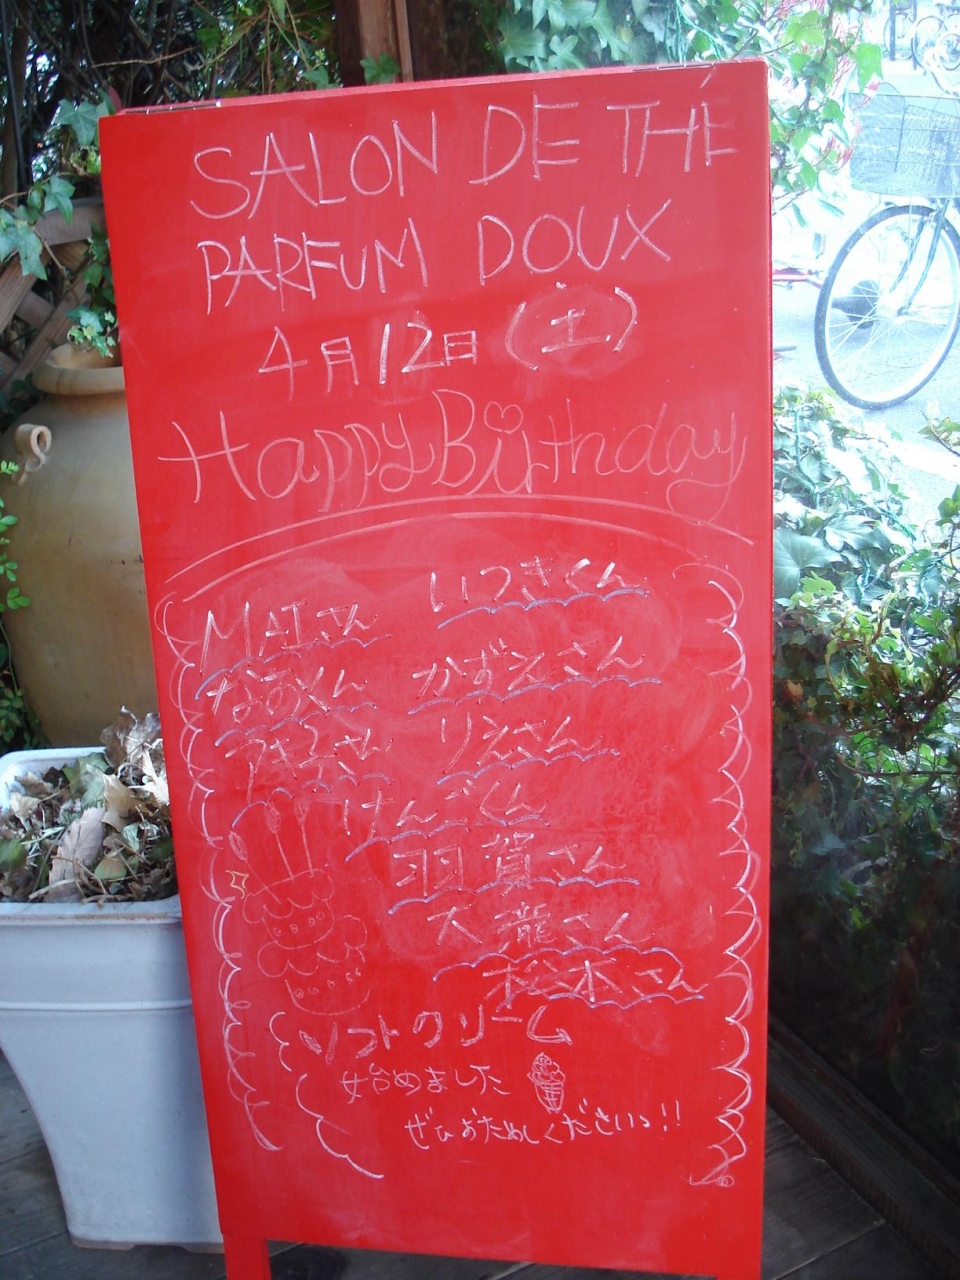 SALON DE THÉ
PARFUM DOUX
4月12日(土)
Happy Birthday
いつきくん
MAIさん
なおくん かずえさん
アキ子さん りえさん
けんごくん
羽賀さん
大瀧さん
松本さん
ソフトクリーム
始めました
ぜひおためしくださいっ!!